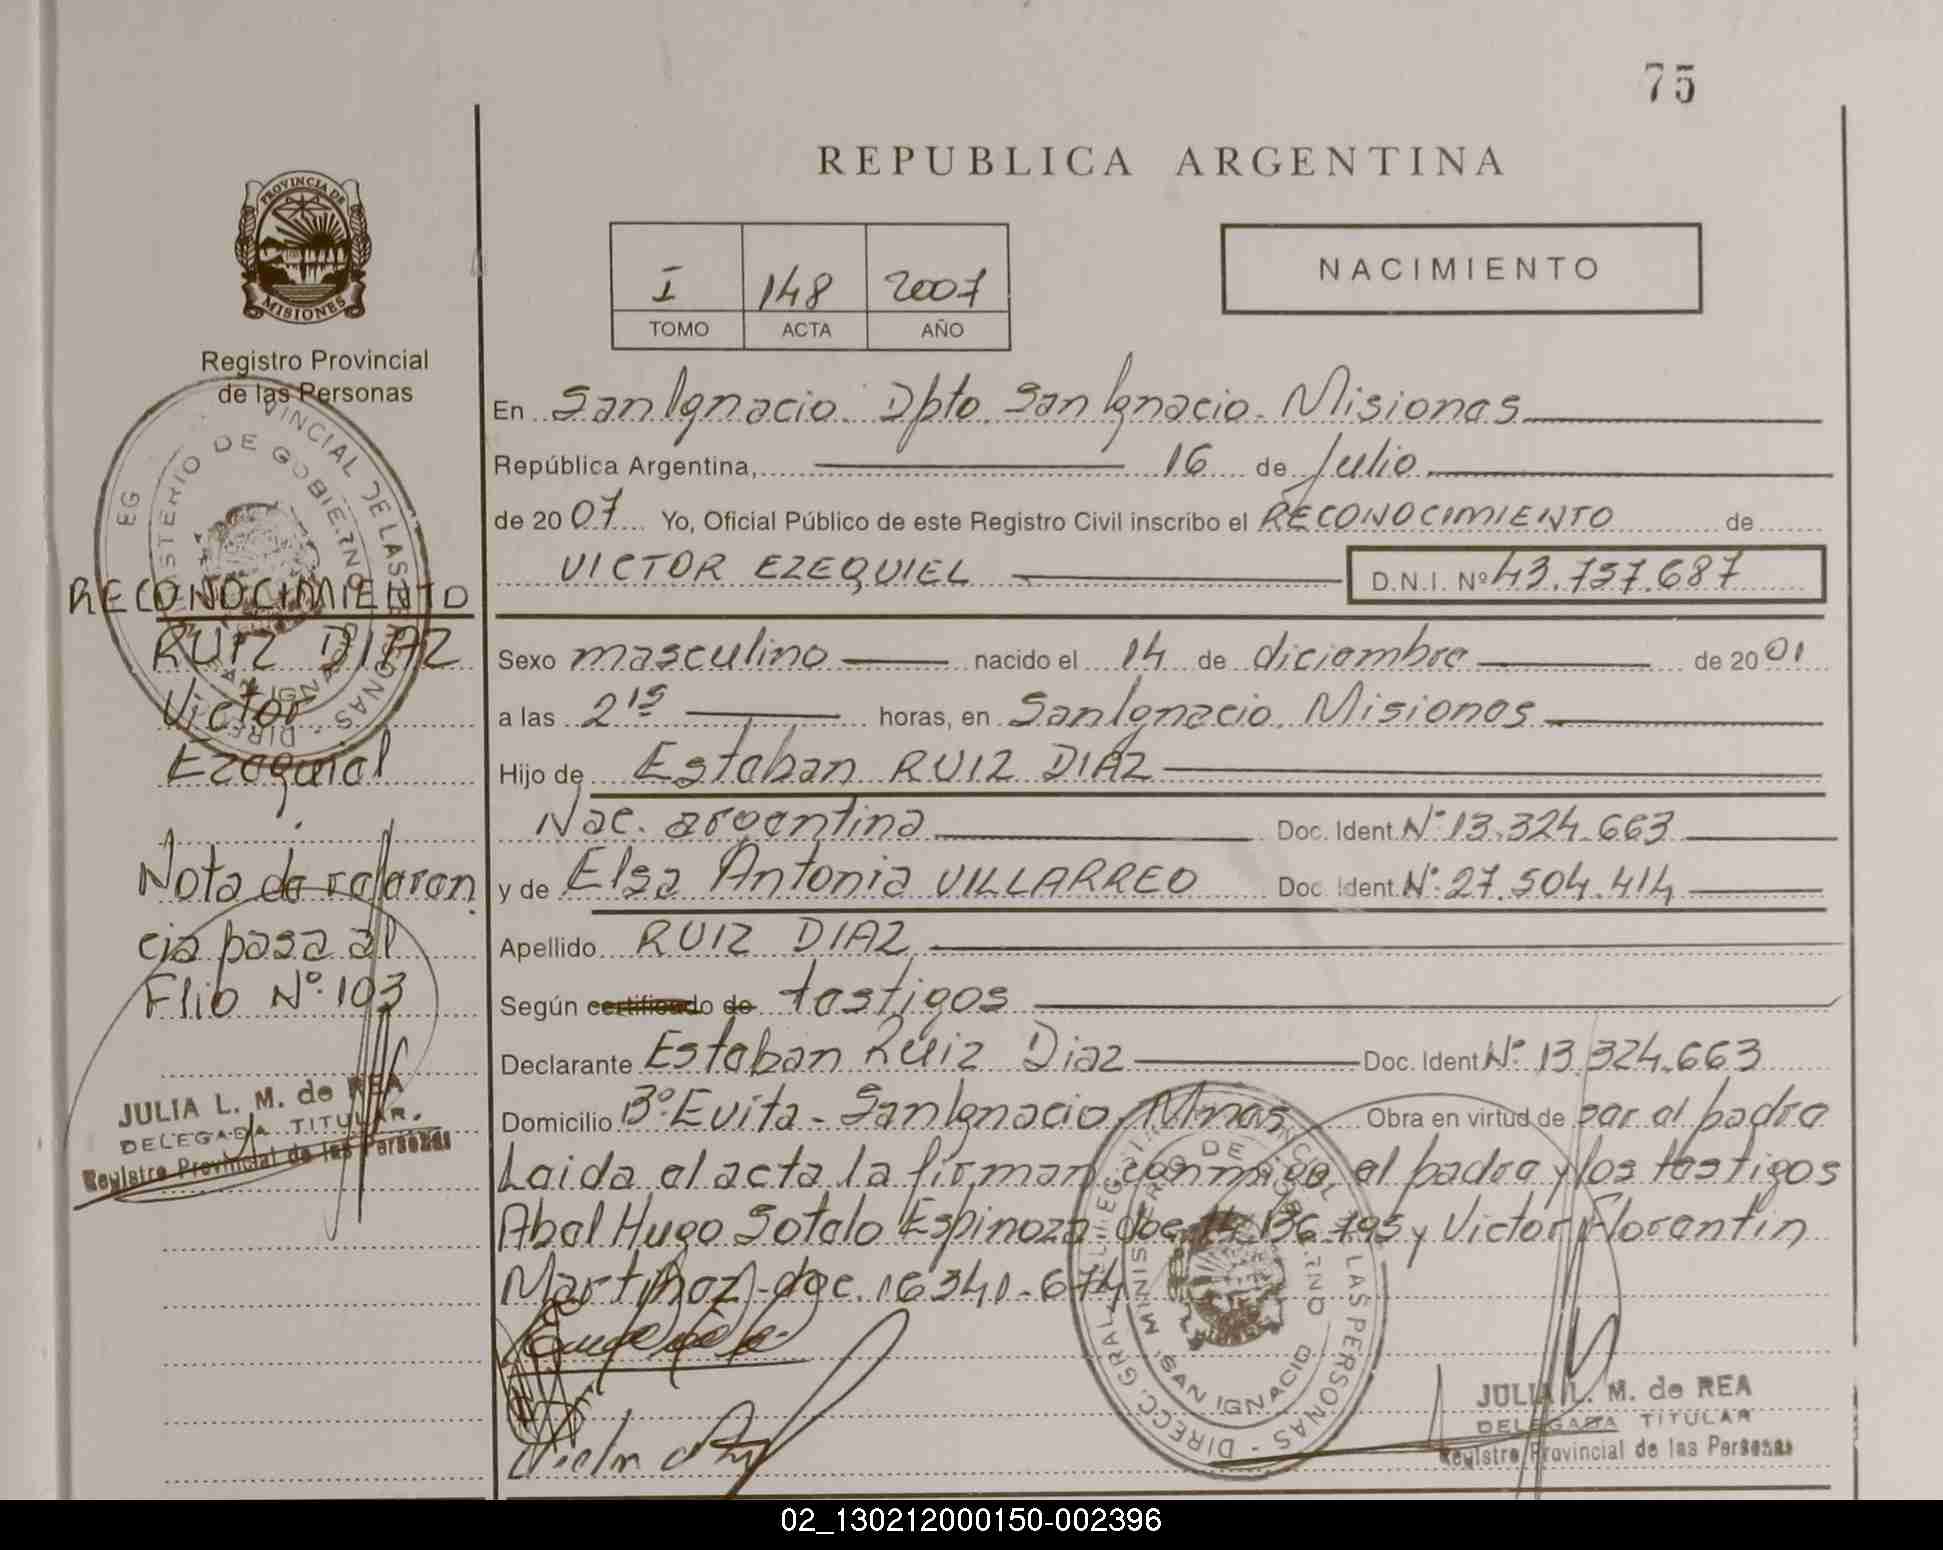 75
REPUBLICA ARGENTINA
PROVINCIA DE
MISIONES
Registro Provincial
de las Personas
I 148 2007
TOMO ACTA AÑO
NACIMIENTO
En San Ignacio. Dpto. San Ignacio. Misiones
República Argentina, 16 de Julio
de 2007 Yo, Oficial Público de este Registro Civil inscribo el RECONOCIMIENTO de
VICTOR EZEQUIEL D.N.I. Nº 43.757.687
Sexo masculino nacido el 14 de diciembre de 2001
a las 2 15 horas, en San Ignacio. Misiones
Hijo de Esteban RUIZ DIAZ
Nac. argentina Doc. Ident. Nº 13.324.663
y de Elsa Antonia VILLARREO Doc. Ident. Nº 27.504.414
Apellido RUIZ DIAZ
Según certificado de testigos
Declarante Esteban Ruiz Diaz Doc. Ident Nº 13.324.663
Domicilio Bº Evita - San Ignacio, Mnes Obra en virtud de ser el padre
Leida el acta la firman conmigo el padre y los testigos
Abel Hugo Sotelo Espinoza doc. 14.136.795 y Victor Florentin
Martinez - doc. 16341.674
RECONOCIMIENTO
RUIZ DIAZ
Victor
Ezequiel
Nota de referen
cia pasa al
Flio Nº 103
JULIA L. M. de REA
DELEGADA TITULAR
Registro Provincial de las Personas
MINISTERIO DE GOBIERNO
SAN IGNACIO
JULIA L. M. de REA
DELEGADA TITULAR
Registro Provincial de las Personas
02_130212000150-002396